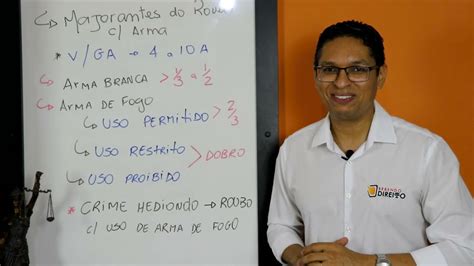 Majorantes do Roubo
c/ Arma
* V/GA → 4 a 10 A
Arma Branca > 1/3 a 1/2
Arma de Fogo
Uso Permitido > 2/3
Uso Restrito
> Dobro
Uso Proibido
* Crime Hediondo → Roubo
c/ uso de arma de fogo
BEBENDO
DIREITO